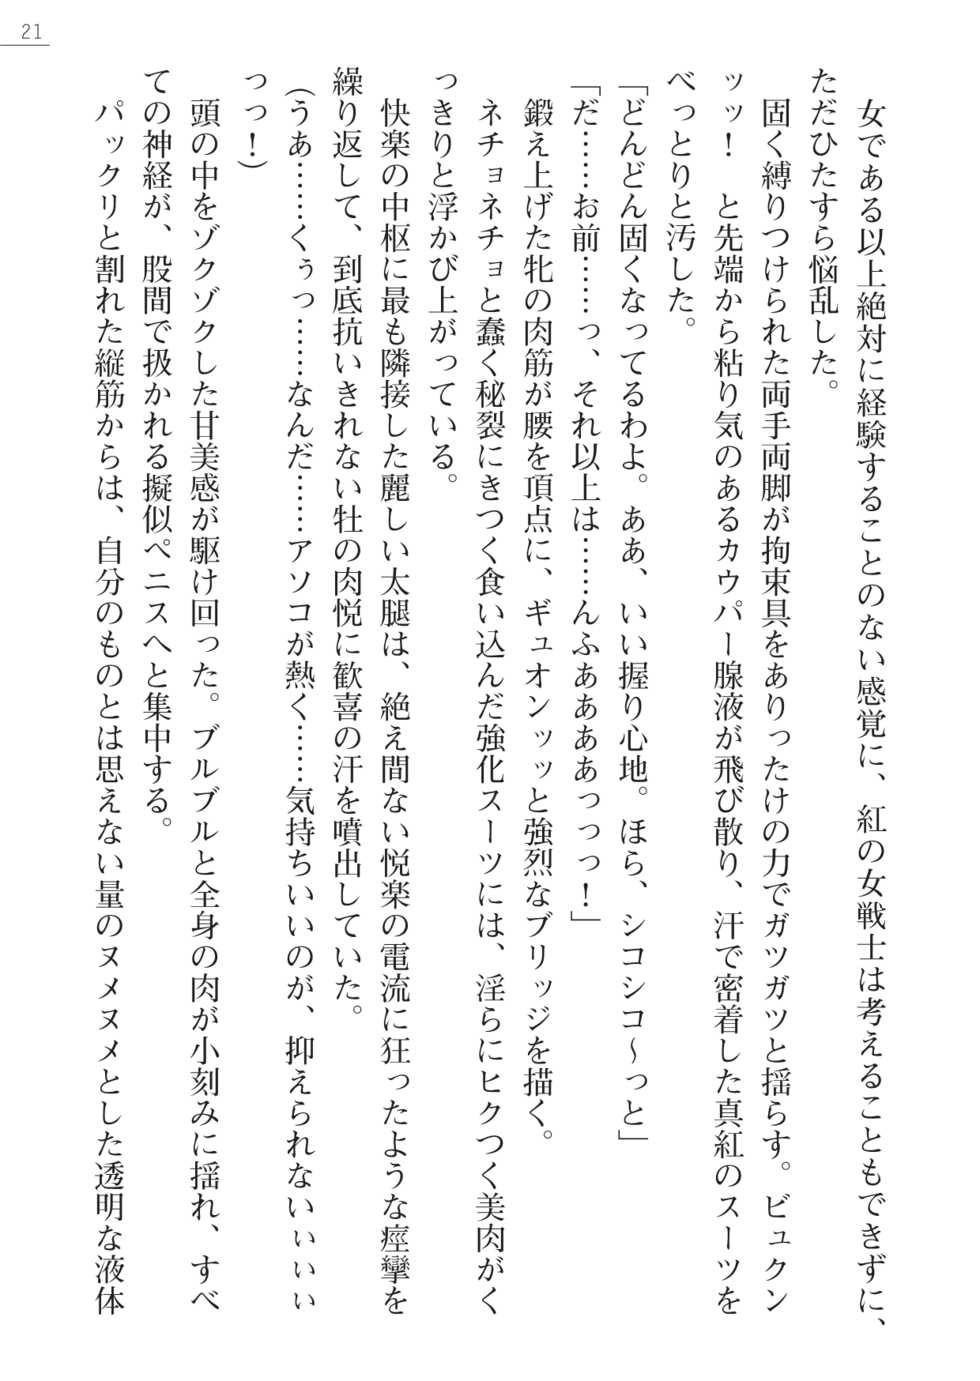 21
女である以上絶対に経験することのない感覚に、紅の女戦士は考えることもできずに、
ただひたすら悩乱した。
固く縛りつけられた両手両脚が拘束具をありったけの力でガツガツと揺らす。ビュクン
ッッ！　と先端から粘り気のあるカウパー腺液が飛び散り、汗で密着した真紅のスーツを
べっとりと汚した。
「どんどん固くなってるわよ。ああ、いい握り心地。ほら、シコシコ～っと」
「だ……お前……っ、それ以上は……んふああああっっっ！」
鍛え上げた牝の肉筋が腰を頂点に、ギュオンッッと強烈なブリッジを描く。
ネチョネチョと蠢く秘裂にきつく食い込んだ強化スーツには、淫らにヒクつく美肉がく
っきりと浮かび上がっている。
快楽の中枢に最も隣接した麗しい太腿は、絶え間ない悦楽の電流に狂ったような痙攣を
繰り返して、到底抗いきれない牡の肉悦に歓喜の汗を噴出していた。
（うあ……くぅっ……なんだ……アソコが熱く……気持ちいいのが、抑えられないぃぃぃ
っっ！）
頭の中をゾクゾクした甘美感が駆け回った。ブルブルと全身の肉が小刻みに揺れ、すべ
ての神経が、股間で扱かれる擬似ペニスへと集中する。
パックリと割れた縦筋からは、自分のものとは思えない量のヌメヌメとした透明な液体